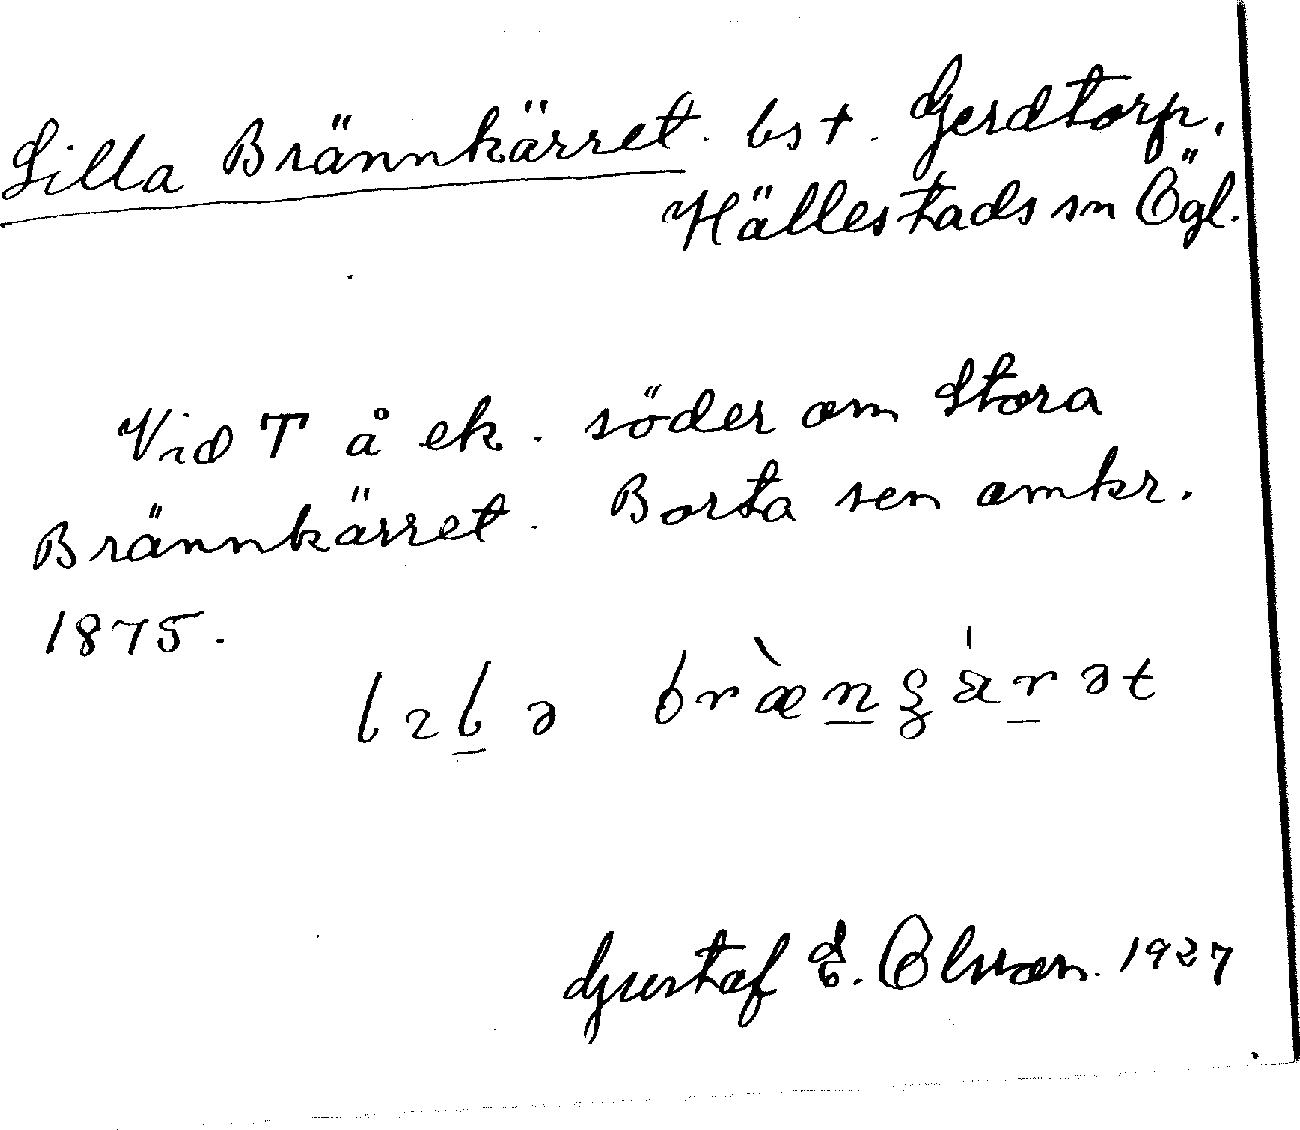 Lilla Brännkärret. bst. Gerdtorp,
Hällestads sn Ögl.
Vid T å ek. söder om Stora
Brännkärret. Borta sen omkr.
1875.
Gustaf E. Olsson. 1927